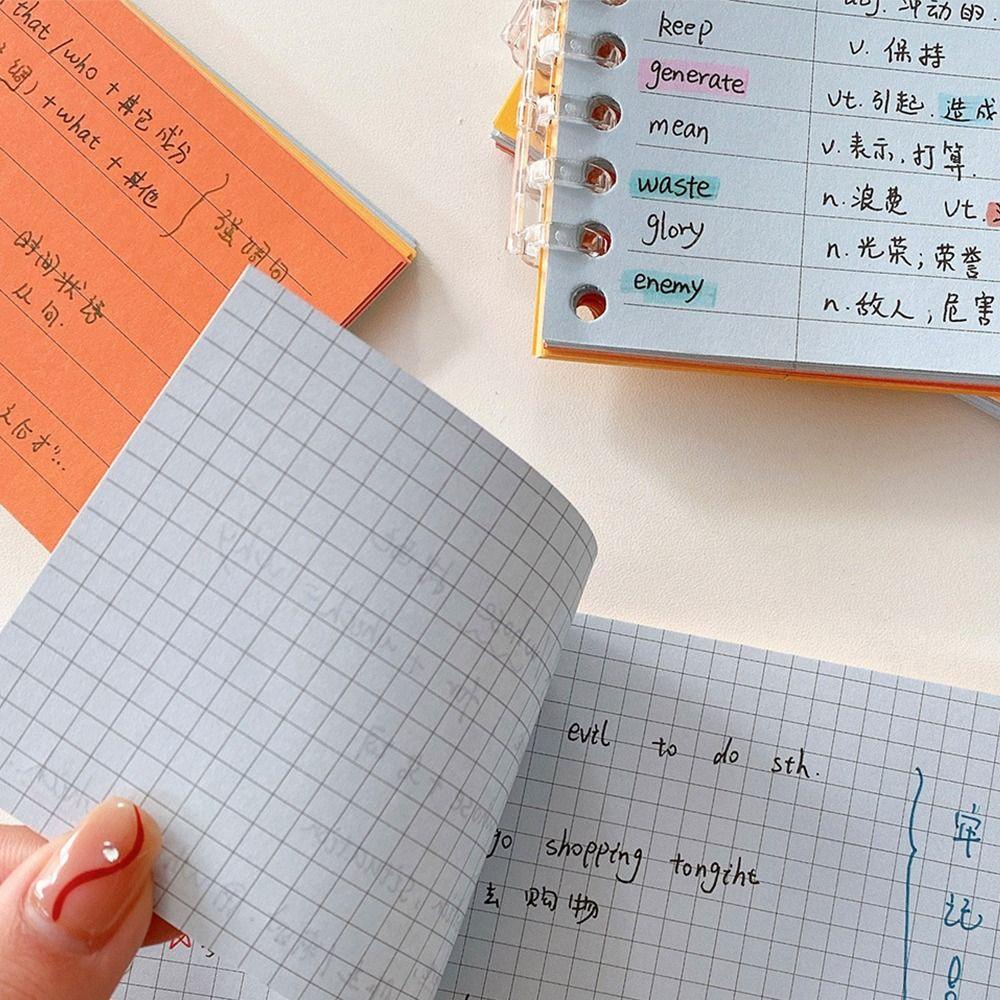 that/who + 其它成分
+what + 其他
强调句
时间状语
从句.
adj. 冲动的.
keep v. 保持
generate vt. 引起. 造成
mean v. 表示. 打算.
waste n. 浪费 vt.
glory n. 光荣; 荣誉
enemy n. 敌人; 危害
evil to do sth.
go shopping tongiht
去 购物
牢
记